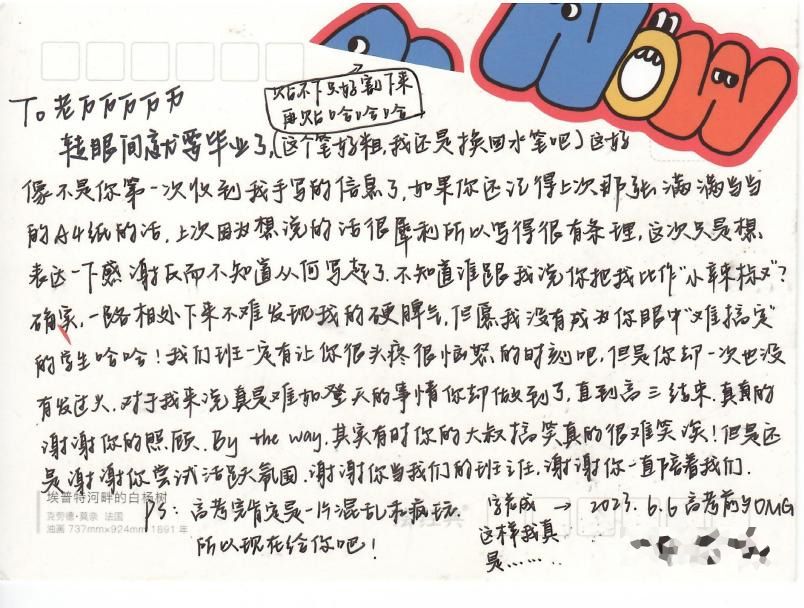 NOW
贴不下只好割下来
再贴哈哈哈
To 老万万万万万
转眼间就要毕业了,(这个笔好粗,我还是换回水笔吧)这好
像不是你第一次收到我手写的信息了,如果你还记得上次那张满满当当
的A4纸的话,上次因为想说的话很犀利所以写得很有条理,这次只是想
表达一下感谢反而不知道从何写起了.不知道谁跟我说你把我比作“小辣椒”?
确实,一路相处下来不难发现我的硬脾气,但愿我没有成为你眼中“难搞”
的学生哈哈!我们班一定有让你很头疼很恼怒的时刻吧,但是你却一次也没
有发过火.对于我来说真是难如登天的事情你却做到了,直到高三结束.真真的
谢谢你的照顾.By the way,其实有时你的大叔搞笑真的很难笑诶!但是还
是谢谢你尝试活跃氛围.谢谢你当我们的班主任,谢谢你一直陪着我们.
埃普特河畔的白杨树
克劳德·莫奈 法国
油画 737mm×924mm 1891 年
PS:高考完肯定是一片混乱和疯玩
所以现在给你吧!
字若成
这样我真
是……
→ 2023.6.6 高考前夕OMG